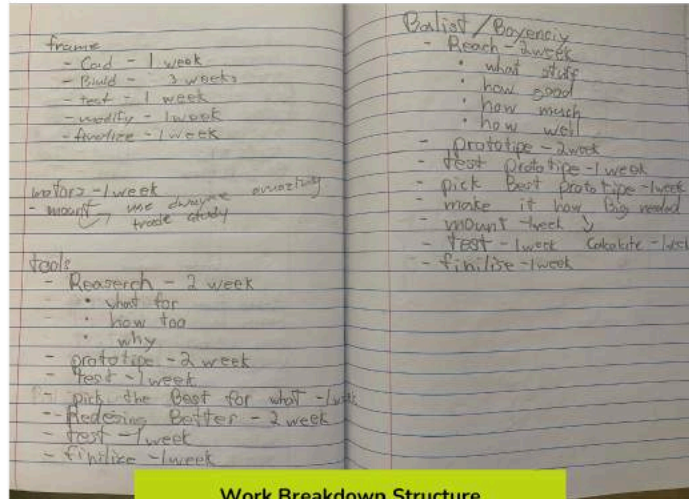 frame
- Cad - 1 week
- Build - 3 weeks
- test - 1 week
- modify - 1 week
- finalize - 1 week
motors - 1 week
- mount use dwayne amazing
trade study
tools
- Reaserch - 2 week
• what for
• how too
• why
- prototipe - 2 week
- test - 1 week
- pick the Best for what - 1 week
- Redesing Better - 2 week
- test - 1 week
- finilize - 1 week
Balist / Boyenciy
- Reach - 2 week
• what stuff
• how good
• how much
• how well
- prototipe - 2 week
- test prototipe - 1 week
- pick Best prototipe - 1 week
- make it how Big needed
- mount - 1 week
- test - 1 week Calculate - 1 week
- finilise - 1 week
Work Breakdown Structure